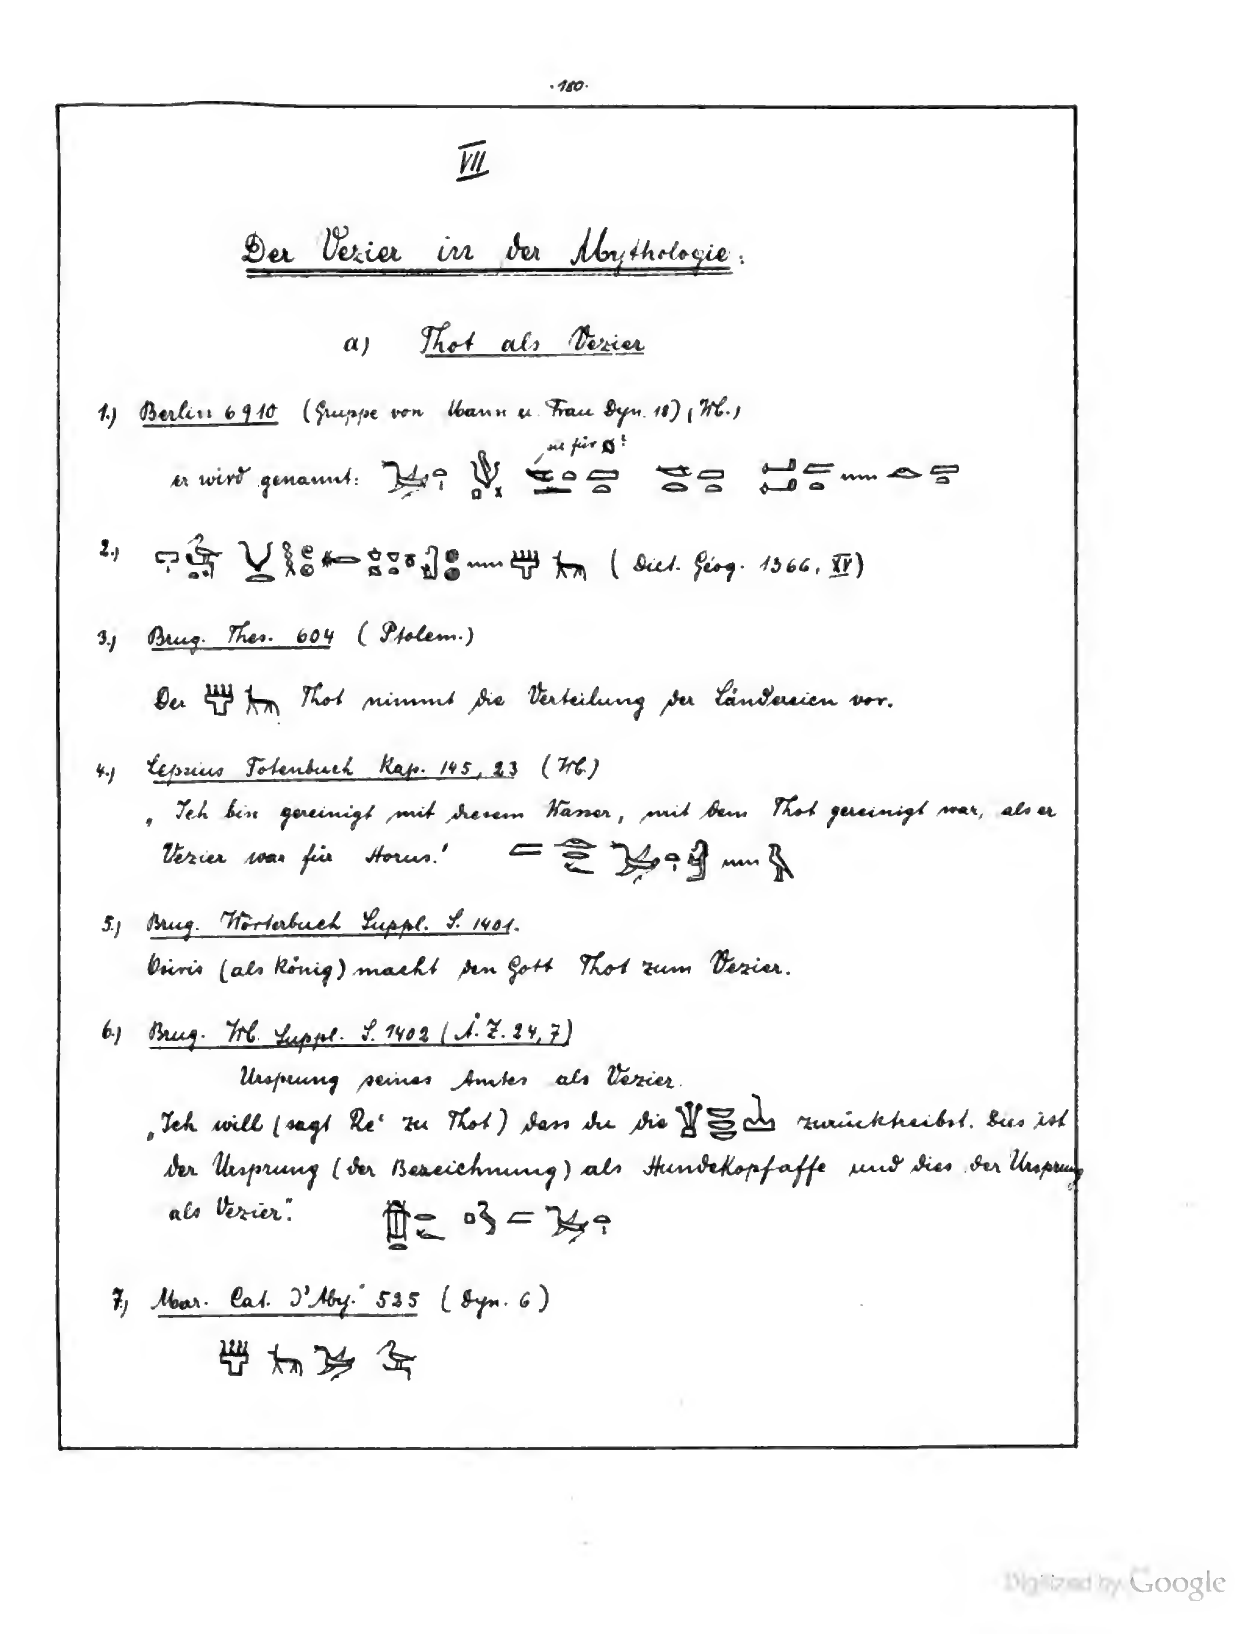 ·180·
VII
Der Vezier in der Mythologie.
a) Thot als Vezier
1.) Berlin 6910 (Gruppe von Mann u. Frau Dyn. 18) (Wb.)
sic für
er wird genannt:
2.) (Dict. Géog. 1366, XV)
3.) Brug. Thes. 604 (Ptolem.)
Der Thot nimmt die Verteilung der Ländereien vor.
4.) Lepsius Totenbuch Kap. 145, 23 (Wb.)
„Ich bin gereinigt mit diesem Wasser, mit dem Thot gereinigt war, als er
Vezier war für Horus."
5.) Brug. Wörterbuch Suppl. S. 1401.
Osiris (als König) macht den Gott Thot zum Vezier.
6.) Brug. Wb. Suppl. S. 1402 (Ä. Z. 24, 7)
Ursprung seines Amtes als Vezier.
„Ich will (sagt Reʿ zu Thot) dass du die zurücktreibst. Dies ist
der Ursprung (der Bezeichnung) als Hundekopfaffe und dies der Ursprung
als Vezier".
7.) Mar. Cat. d'Aby. 525 (Dyn. 6)
Digitized by Google